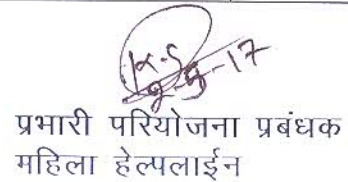 प्रभारी परियोजना प्रबंधक
महिला हेल्पलाईन